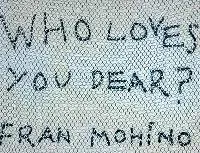 WHO LOVES
YOU DEAR?
FRAN MOHÍNO